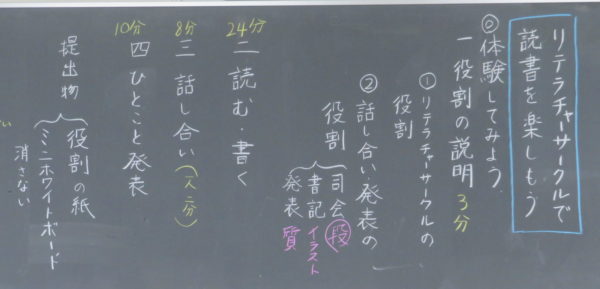 リテラチャーサークルで
読書を楽しもう
◎体験してみよう
一 役割の説明 3分
①リテラチャーサークルの
役割
②話し合い・発表の
役割
司会 段
書記 イラスト
発表 質
24分
二 読む・書く
8分
三 話し合い
10分
四 ひとこと発表
提出物
役割の紙
ミニホワイトボード
消さない